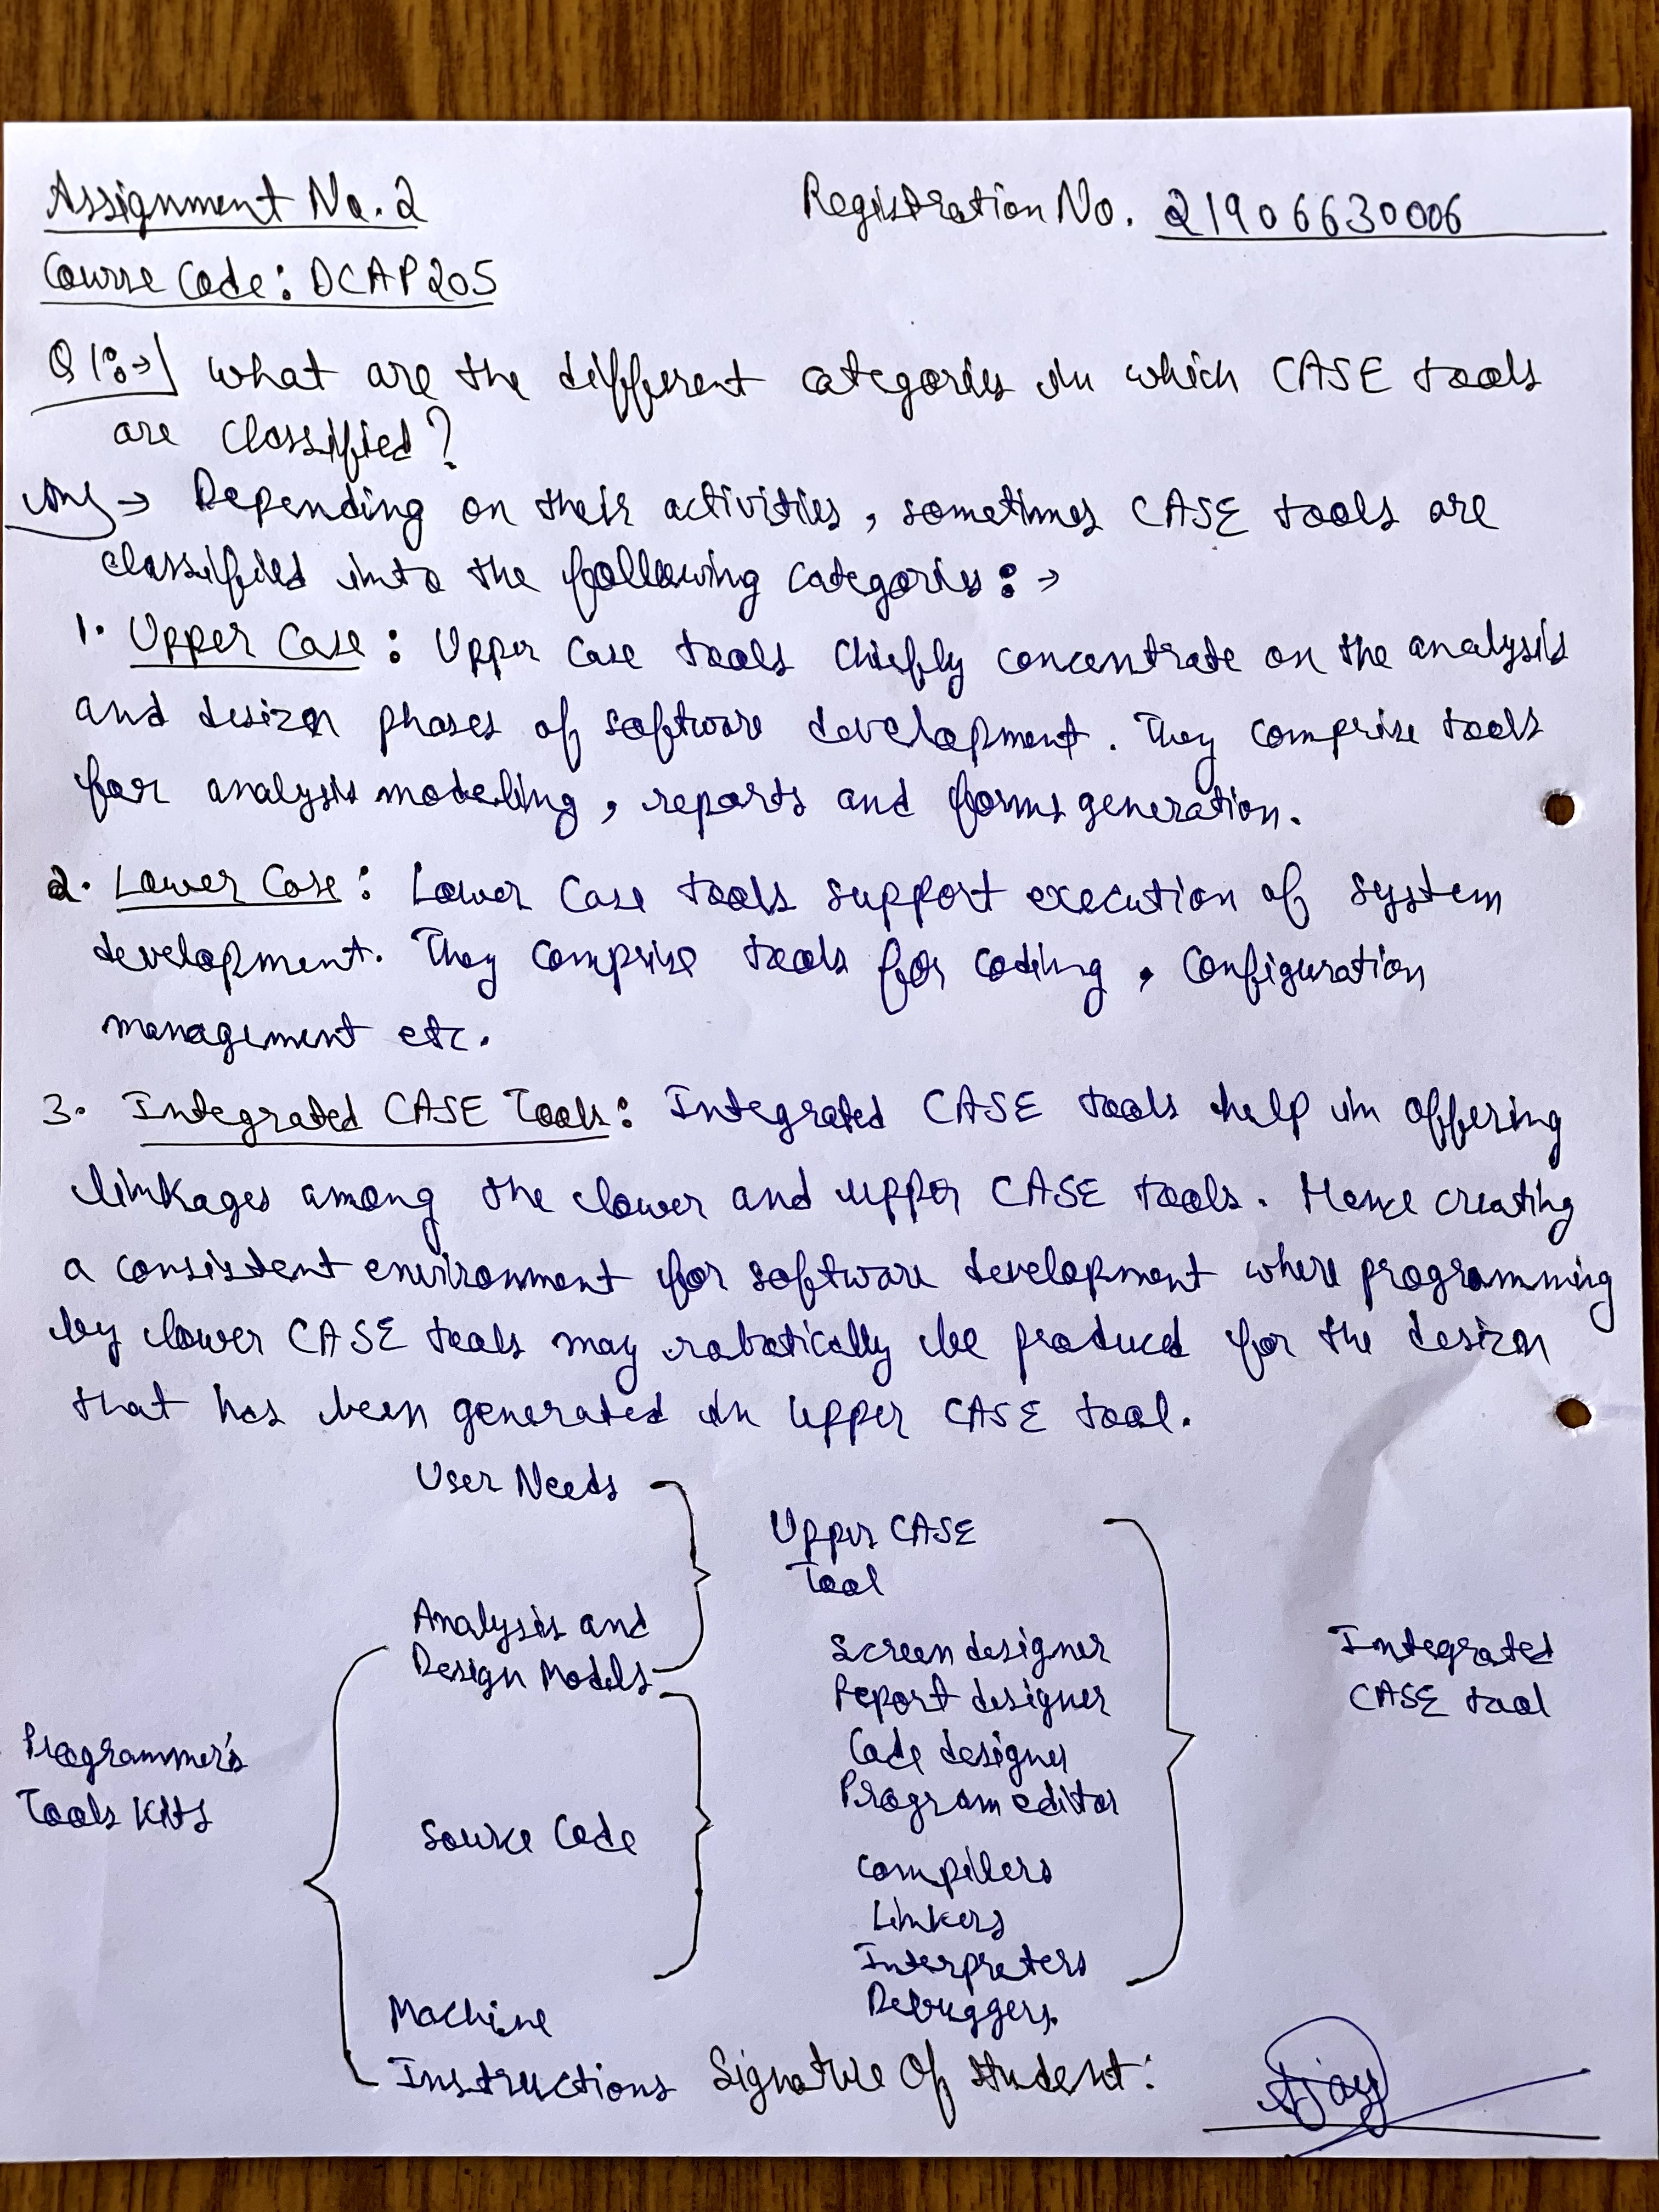 Assignment No. 2
Registration No. 21906630006
Course Code: DCAP205
Q1:→ What are the different categories in which CASE tools
are classified?
Ans → Depending on their activities, sometimes CASE tools are
classified into the following categories: →
1. Upper Case: Upper Case tools chiefly concentrate on the analysis
and design phases of software development. They comprise tools
for analysis modeling, reports and forms generation.
2. Lower Case: Lower Case tools support execution of system
development. They comprise tools for coding, configuration
management etc.
3. Integrated CASE Tools: Integrated CASE tools help in offering
linkages among the lower and upper CASE tools. Hence creating
a consistent environment for software development where programming
by lower CASE tools may robotically be produced for the design
that has been generated in upper CASE tool.
User Needs
Upper CASE
Tool
Analysis and
Design Models
Screen designer
Report designer
Code designer
Program editor
Integrated
CASE tool
Programmer's
Tools Kits
Source Code
Compilers
Linkers
Interpreters
Debuggers.
Machine
Instructions
Signature of student:
Ajay